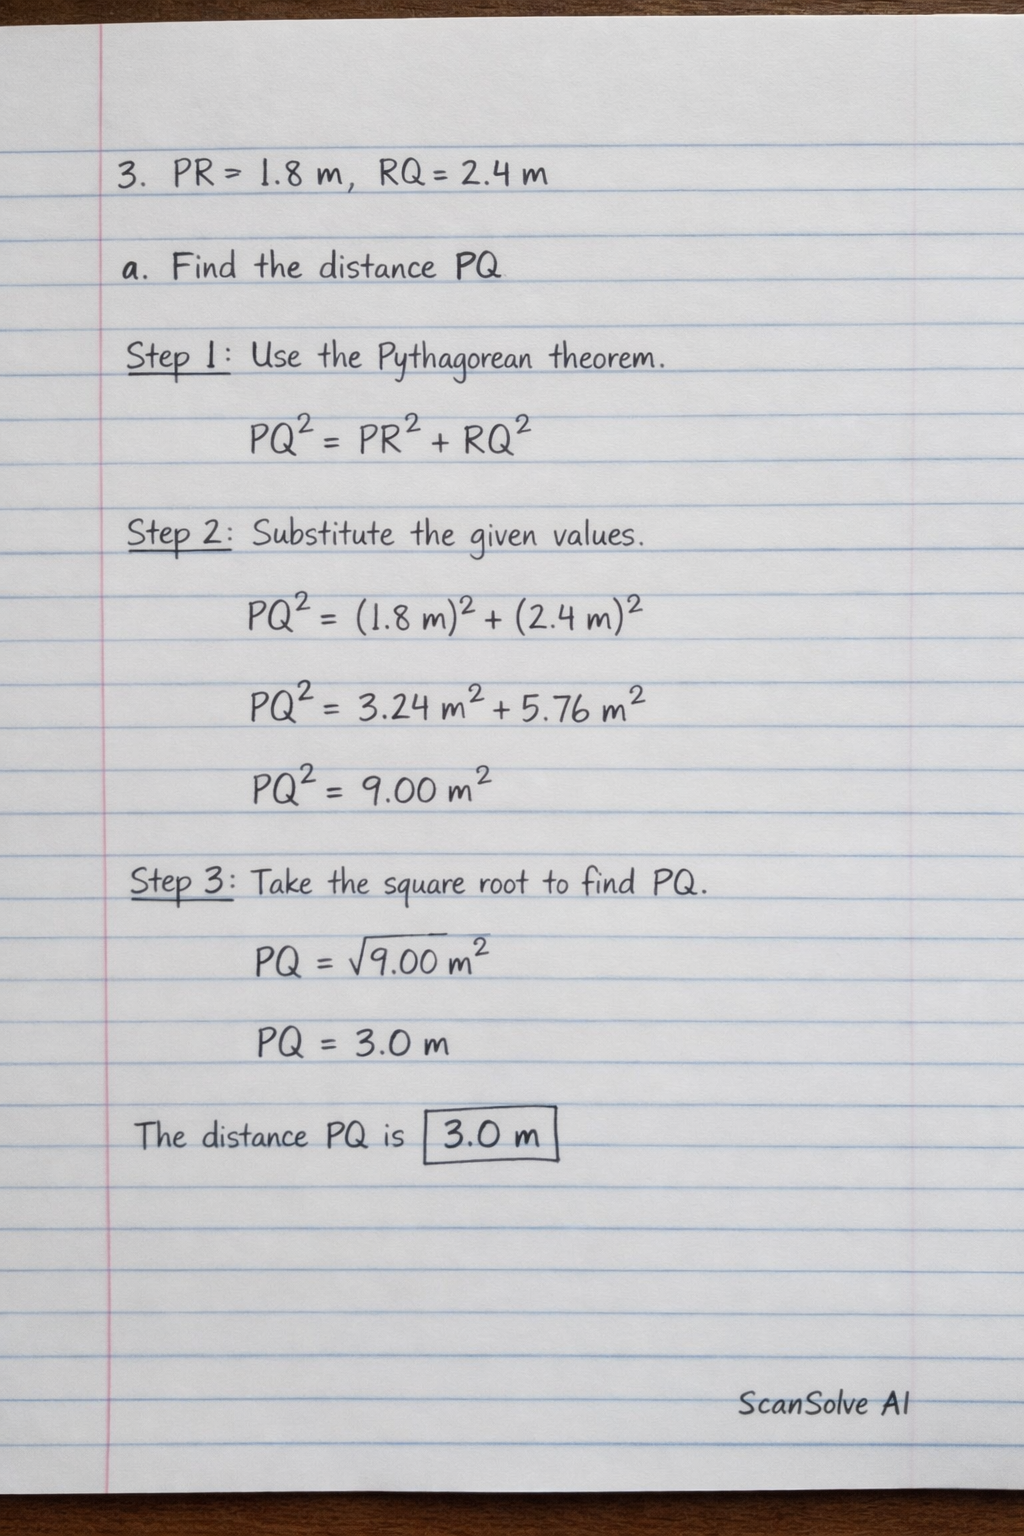 3. PR = 1.8 m, RQ = 2.4 m
a. Find the distance PQ
Step 1: Use the Pythagorean theorem.
PQ² = PR² + RQ²
Step 2: Substitute the given values.
PQ² = (1.8 m)² + (2.4 m)²
PQ² = 3.24 m² + 5.76 m²
PQ² = 9.00 m²
Step 3: Take the square root to find PQ.
PQ = √9.00 m²
PQ = 3.0 m
The distance PQ is 3.0 m
ScanSolve AI